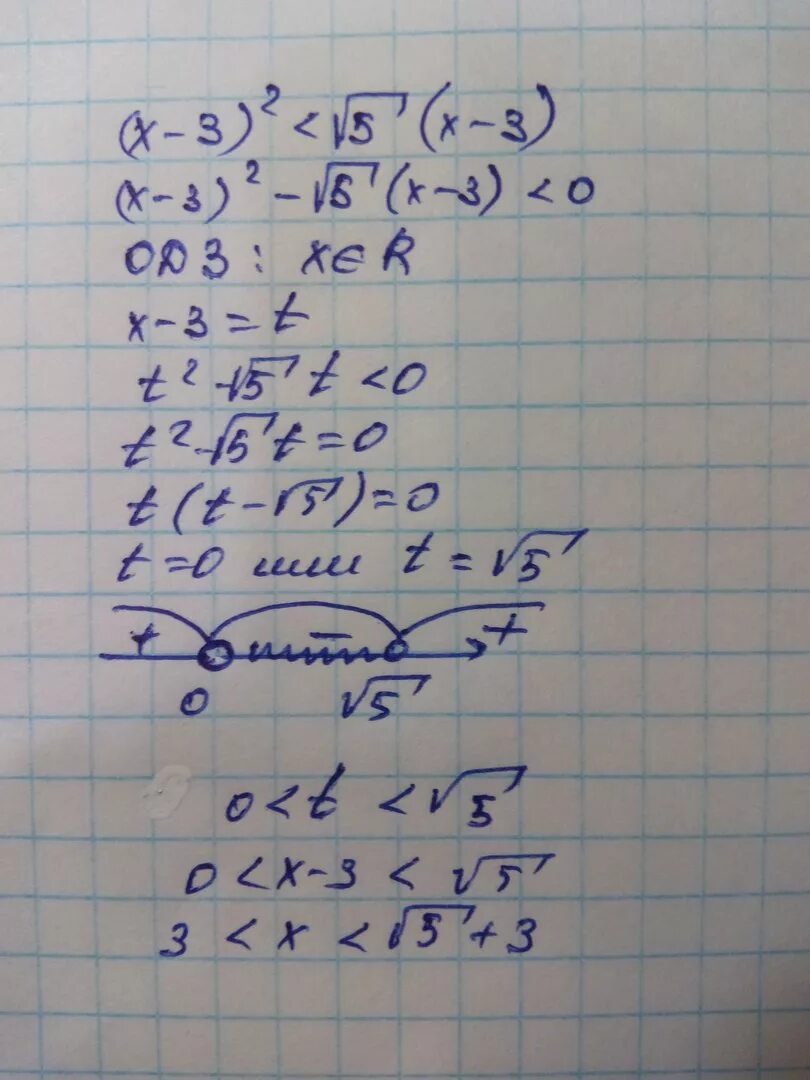 (x-3)² < √5 (x-3)
(x-3)² - √5 (x-3) < 0
ОДЗ: x∈R
x-3 = t
t² - √5 t < 0
t² - √5 t = 0
t(t-√5) = 0
t = 0 или t = √5
+ - +
0 √5
0 < t < √5
0 < x-3 < √5
3 < x < √5 + 3